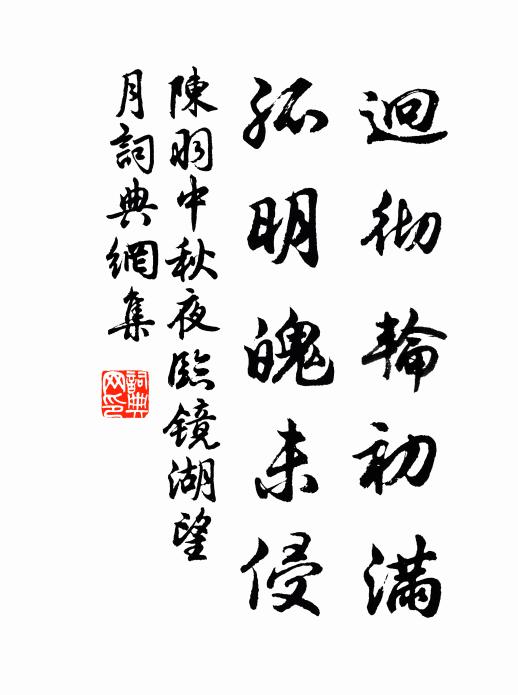 迥彻輪初滿
孤明魄未侵
陳羽中秋夜臨镜湖望
月詞典網集
詞典
网印